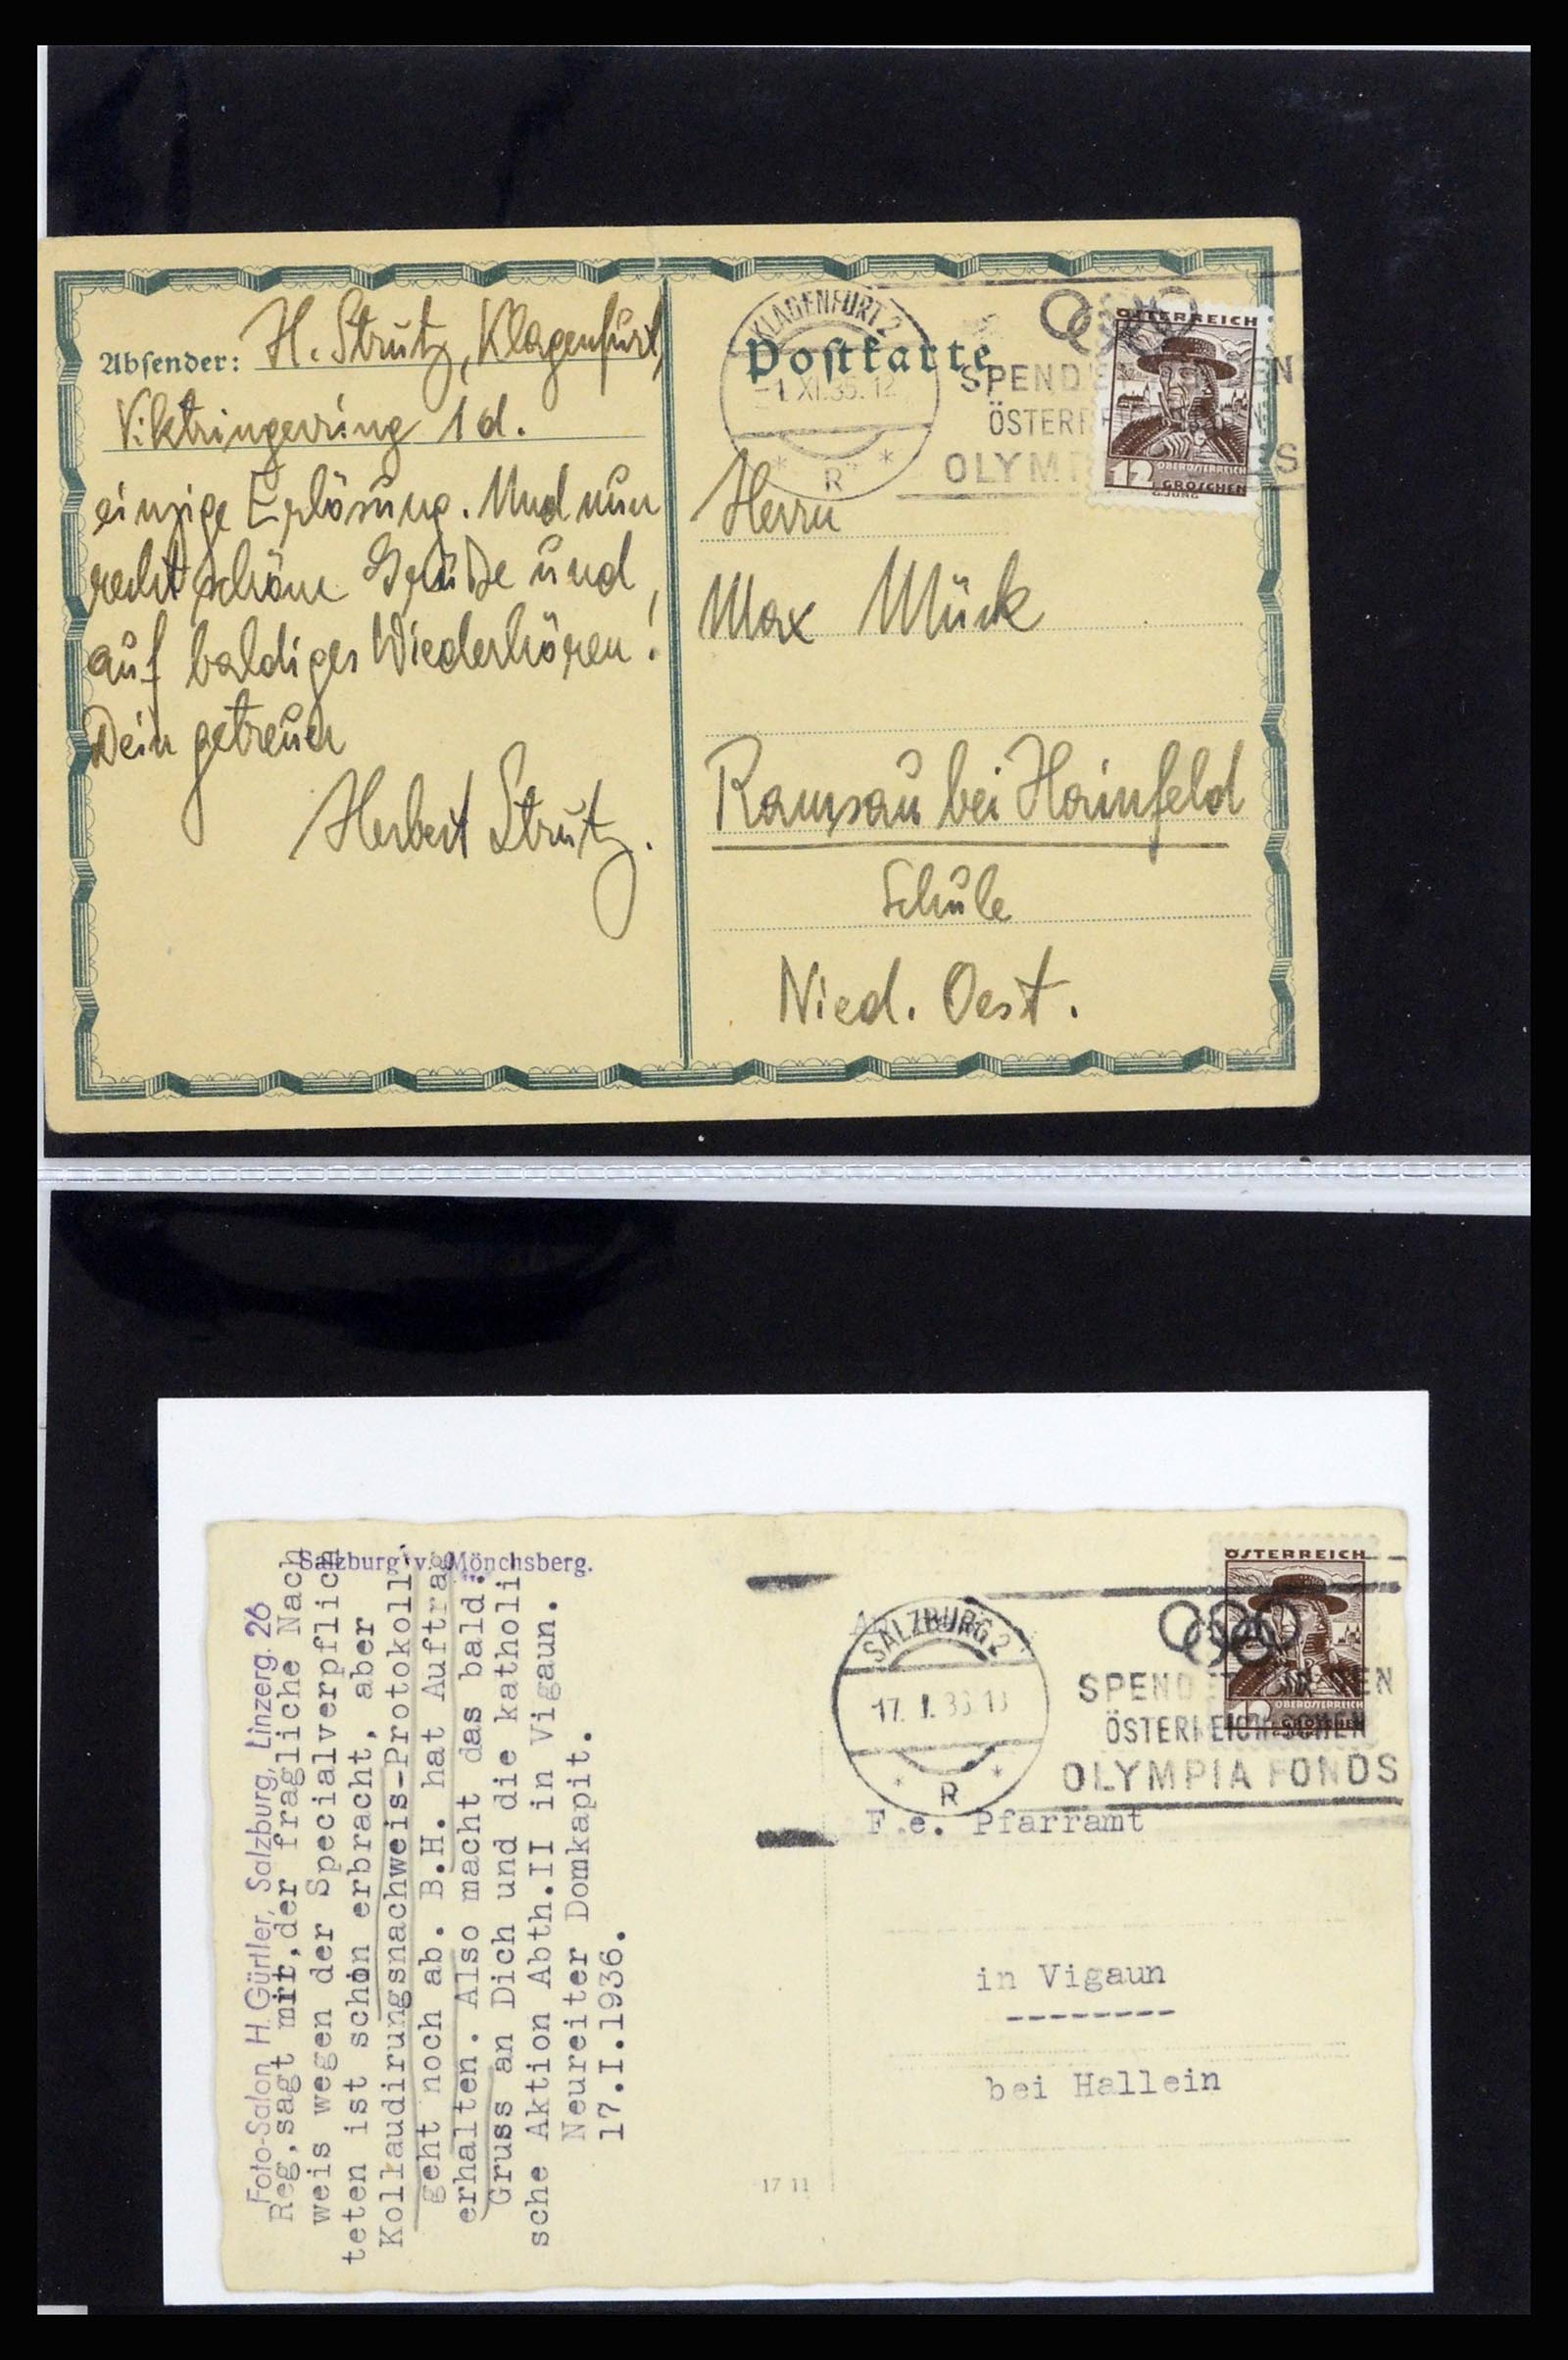 Absender: H. Strutz, Klagenfurt,
Viktringerring 1d.
einzige Erlösung. Und nun
recht schöne Grüße und
auf baldiges Wiederhören!
Dein getreuer
Herbert Strutz.
Postkarte
KLAGENFURT 2
XI.35.12
R
SPENDE
ÖSTERR
OLYM
ÖSTERREICH
12 OBERÖSTERREICH
GROSCHEN
G.JUNG
Herrn
Max Mück
Ramsau bei Hainfeld
Schule
Nied. Oest.
Salzburg v. Mönchsberg.
Foto-Salon H. Gürtler, Salzburg, Linzerg. 26
Reg, sagt mir, der fragliche Nach
weis wegen der Specialverpflich
teten ist schon erbracht, aber
Kollaudirungsnachweis-Protokoll
geht noch ab. B.H. hat Auftrag
erhalten. Also macht das bald.
Gruss an Dich und die katholi
sche Aktion Abth.II in Vigaun.
Neureiter Domkapit.
17.I.1936.
SALZBURG 2
17. I. 36
R
SPENDET
ÖSTERREICHISCHEN
OLYMPIA FONDS
ÖSTERREICH
12 OBERÖSTERREICH
GROSCHEN
F.e. Pfarramt
in Vigaun
--------
bei Hallein
17 11